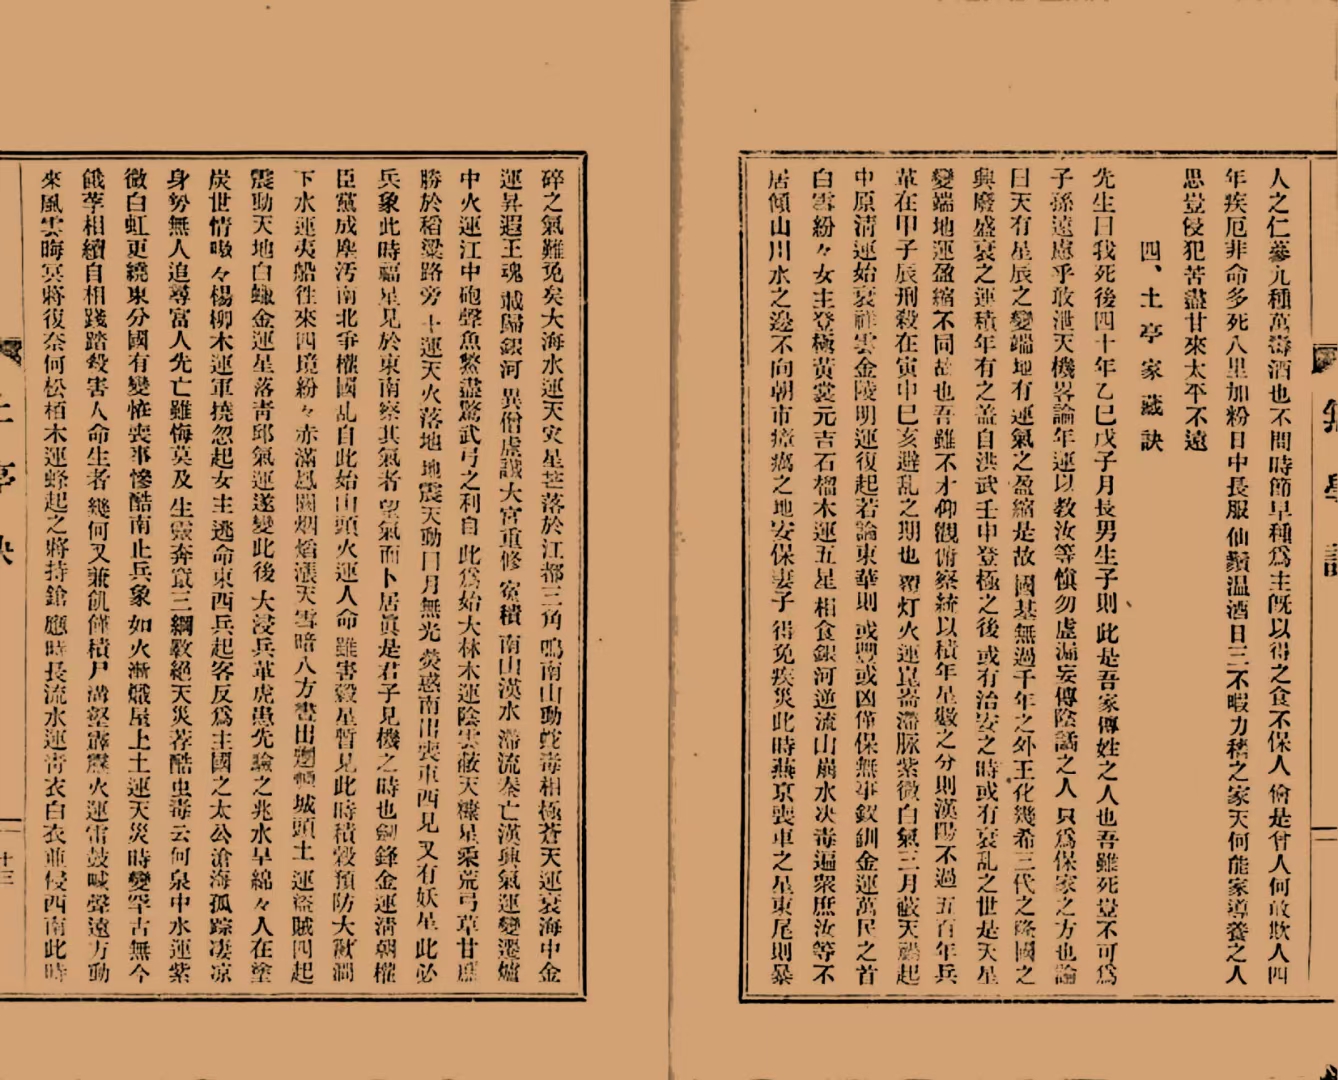 人之仁蔘九種萬壽酒也不間時節早種爲主旣以得之食不保人倫是何人何敢欺人四
年疾厄非命多死八里加粉日中長服仙鬚温酒日三不暇力穡之家天何能家導養之人
思豈侵犯苦盡甘來太平不遠
四、土亭家藏訣
先生曰我死後四十年乙巳戊子月長男生子則此是吾家傳姓之人也吾雖死豈不可爲
子孫遠慮乎敢泄天機畧論年運以教汝等愼勿虛漏妄傳陰話之人只爲保家之方也論
曰天有星辰之變端地有運氣之盈縮是故國基無過千年之外王化幾希三代之隆國之
興廢盛衰之運積年有之盖自洪武壬申登極之後或有治安之時或有衰乱之世是天星
變端地運盈縮不同故也吾雖不才仰觀俯察統以積年星數之分則漢陽不過五百年兵
革在甲子辰刑殺在寅申巳亥避乱之期也覆灯火運崑崙滯脉紫微白氣三月蔽天禍起
中原淸運始衰祥雲金陵明運復起若論東華則或豐或凶僅保無事釵釧金運萬民之首
白雲紛々女主登極黃裳元吉石榴木運五星相食銀河逆流山崩水决毒遍衆庶汝等不
居傾山川水之邊不向朝市瘴癘之地安保妻子得免疾災此時燕京喪車之星東尾則暴
碎之氣難免矣大海水運天灾星芒落於江都三角鳴南山動蛇毒相極蒼天運衰海中金
運昇遐王魂 歸銀河異僧虛 大宮重修寃積南山漢水滯流秦亡漢興氣運變遷爐
中火運江中砲聲魚鱉盡驚武弓之利自此爲始大林木運陰雲蔽天欃星乘荒弓草甘
勝於稻粱路旁土運天火落地地震天動日月無光熒惑南出喪車西見又有妖星此必
兵象此時福星見於東南察其氣者望氣而卜居眞是君子見機之時也劍鋒金運淸朝權
臣黨成塵汚南北爭權國乱自此始山頭火運人命雖害穀星暫見此時積穀預防大 澗
下水運夷船徃來四境紛々赤滿 關烟焰漲天雪暗八方書出 城頭土運盜賊四起
震動天地白鑞金運星落靑邱氣運遂變此後大浸兵革虎患先驗之兆水旱綿々人在塗
炭世情啾々楊柳木運軍撓忽起女主逃命東西兵起客反爲主國之太公滄海孤踪凄凉
身勢無人追尋富人先亡雖悔莫及生靈奔竄三綱斁絕天災荐酷虫毒云何泉中水運紫
微白虹更繞東分國有變恠喪事慘酷南止兵象如火漸熾屋上土運天災時變罕古無今
餓莩相續自相踐踏殺害人命生者幾何又兼飢饉積尸溝壑霹靂火運雷鼓喊聲遠方動
來風雲晦冥將復奈何松栢木運蜂起之將持鎗應時長流水運靑衣白衣並侵西南此時
土亭訣
十三